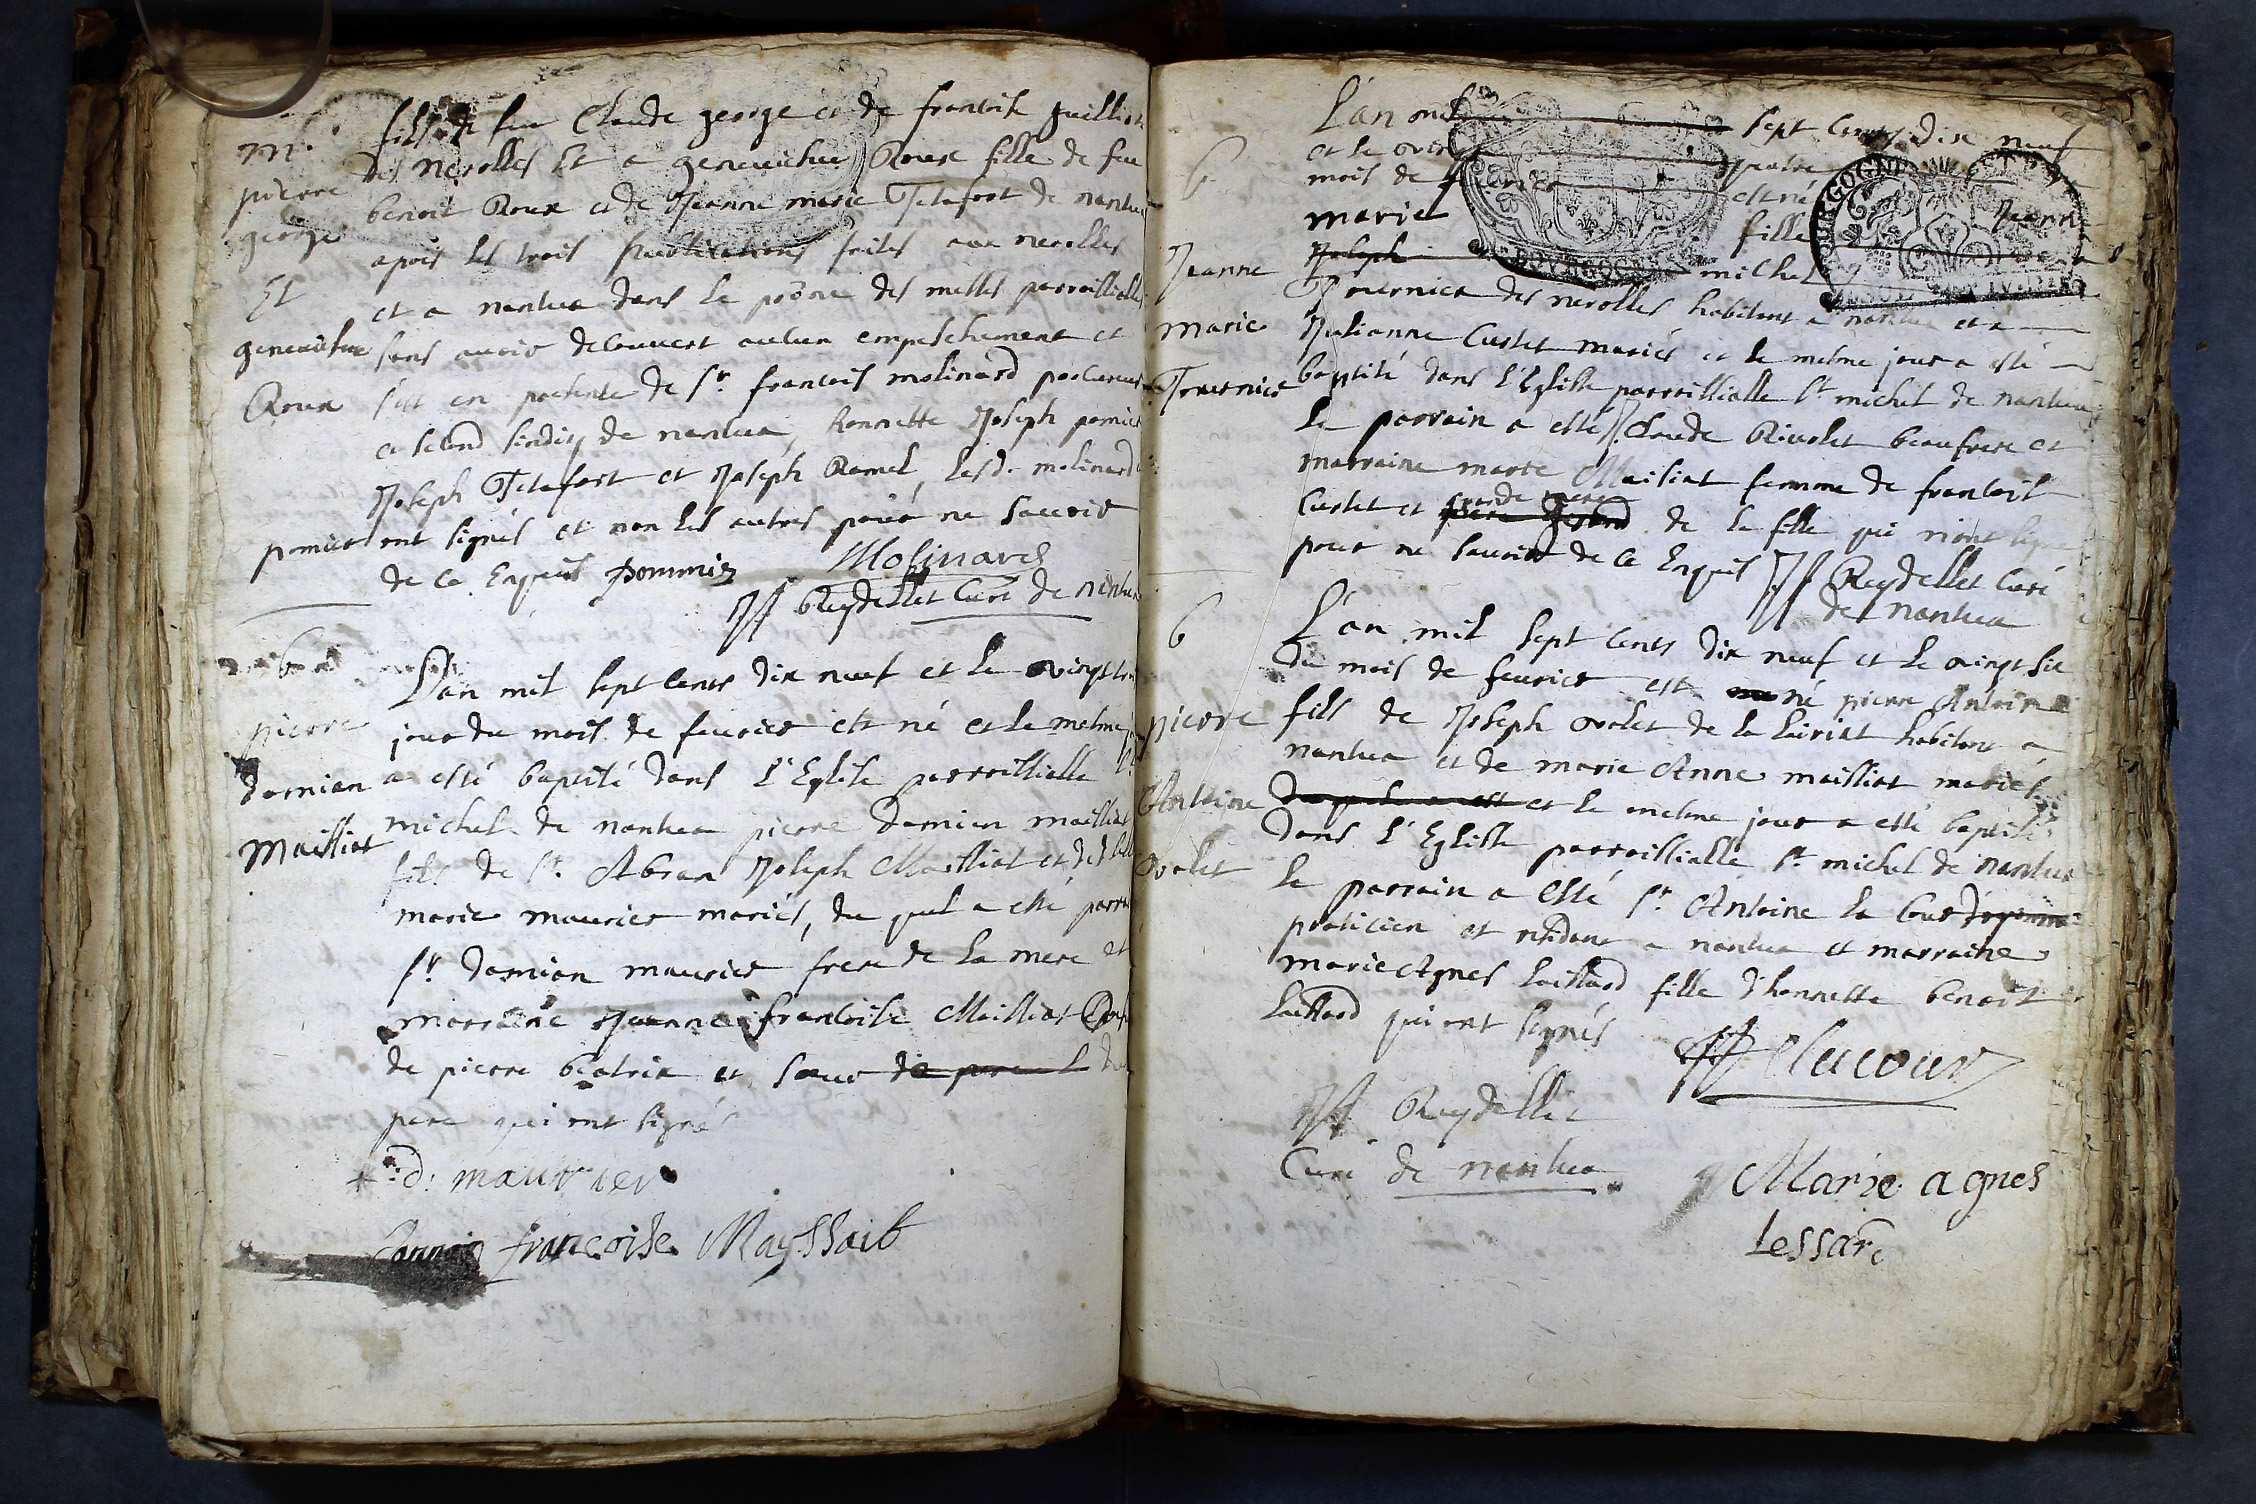 m.
pierre
george
Et
geneuiefue
Roux
fils de feu Claude george et de francoise guilliot
des nerolles Et a geneuiefue Roux fille de feu
benoit Roux et de Jeanne marie Tetafort de nantua
apres les trois publications faites aux nerolles
et a nantua dans le prone des messes parroissialle
sans auoir decouuert aucun empeschement et
s'est en presente de Sr francois molinard procureur
et second sindiq de nantua, honnette Joseph pomier
Joseph Tetafort et Joseph Ramel, lesd. molinard
pomier ont signés et non les autres pour ne sauoir
de ce Enquis pommier Molinard
Reydellet Curé de nantua
b
pierre
damian
Mailliat
L'an mil sept cents dix neuf et le vingt trois
jour du mois de feurier est né et le mesme
a esté baptisé dans l'Eglise parroissialle
michel de nantua pierre damien mailliat
fils de Sr Abran Joseph Mailliat et de
marie maurier mariés, du quel a esté parrain
Sr damian maurier frere de la mere et
marraine Jeanne francoise Mailliat
de pierre beatrix et soeur
pere qui ont signés
d: maurier
francoise Mayssait
b
Jeanne
marie
Tournier
L'an mil sept cents dix neuf
et le vingt quatre
mois de est né
marie fille Jeanne
Joseph michel
Tournier des nerolles habitant a nantua et a
Julianne Custet mariés et le mesme jour a esté
baptisé dans l'Eglise parroissialle St michel de nantua
le parrain a esté Claude Riuolet beaufrere et
marraine marie Mailiat femme de francois
Custet et grande mere de la fille qui n'ont signé
pour ne sauoir de ce Enquis Reydellet Curé
de nantua
b
pierre
Antoine
volet
L'an mil sept cents dix neuf et le vingt six
du mois de feurier est né pierre Antoine
fils de Joseph volet de la lairiat habitant a
nantua et de marie Anne mailliat mariés
et le mesme jour a esté baptisé
dans l'Eglise parroissialle St michel de nantua
le parrain a esté Sr Antoine la Cour
praticien et residant a nantua et marraine
marie Agnes laissard fille d'honnette benoit
laissard qui ont signés
Delacour
Reydellet
Curé de nantua
Marie agnes
Lessard